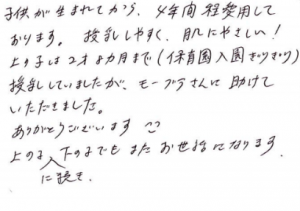 子供が生まれてから、4年間 経愛用して
おります。 授乳しやすく、肌にやさしい!
上の子は2才4カ月まで(保育園入園ぎりぎり)
授乳していましたが、モーブラさんに助けて
いただきました。
ありがとうございます
上の子 下の子でも またお世話になります.
に続き.